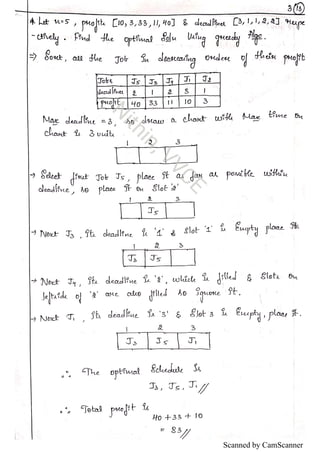 3 (13)
* Let n=5, profits [10, 3, 33, 11, 40] & deadlines [3, 1, 1, 2, 2] respe
-ctively. Find the optimal Solu Using greedy Algo.
=> Sort, all the Job In decreasing order of their profit
Jobs J5 J3 J4 J1 J2
deadlines 2 1 2 3 1
profit 40 33 11 10 3
Max deadline = 3, so draw a chart with Max time on
chart is 3 units
1 2 3
→ Select first Job J5, place it as far as possible within
deadline, so place it on Slot '2'
1 2 3
J5
→ Next J3, its deadline is '1' & slot '1' is Empty place it
1 2 3
J3 J5
→ Next J4, its deadline is '2', which is filled & Slots on
leftside of '2' are also filled so ignore it.
→ Next J1, its deadline is '3' & Slot 3 is Empty, place it.
1 2 3
J3 J5 J1
∴ The optimal Schedule Is
J3, J5, J1 //
∴ Total profit is
40 + 33 + 10
= 83 //
Scanned by CamScanner